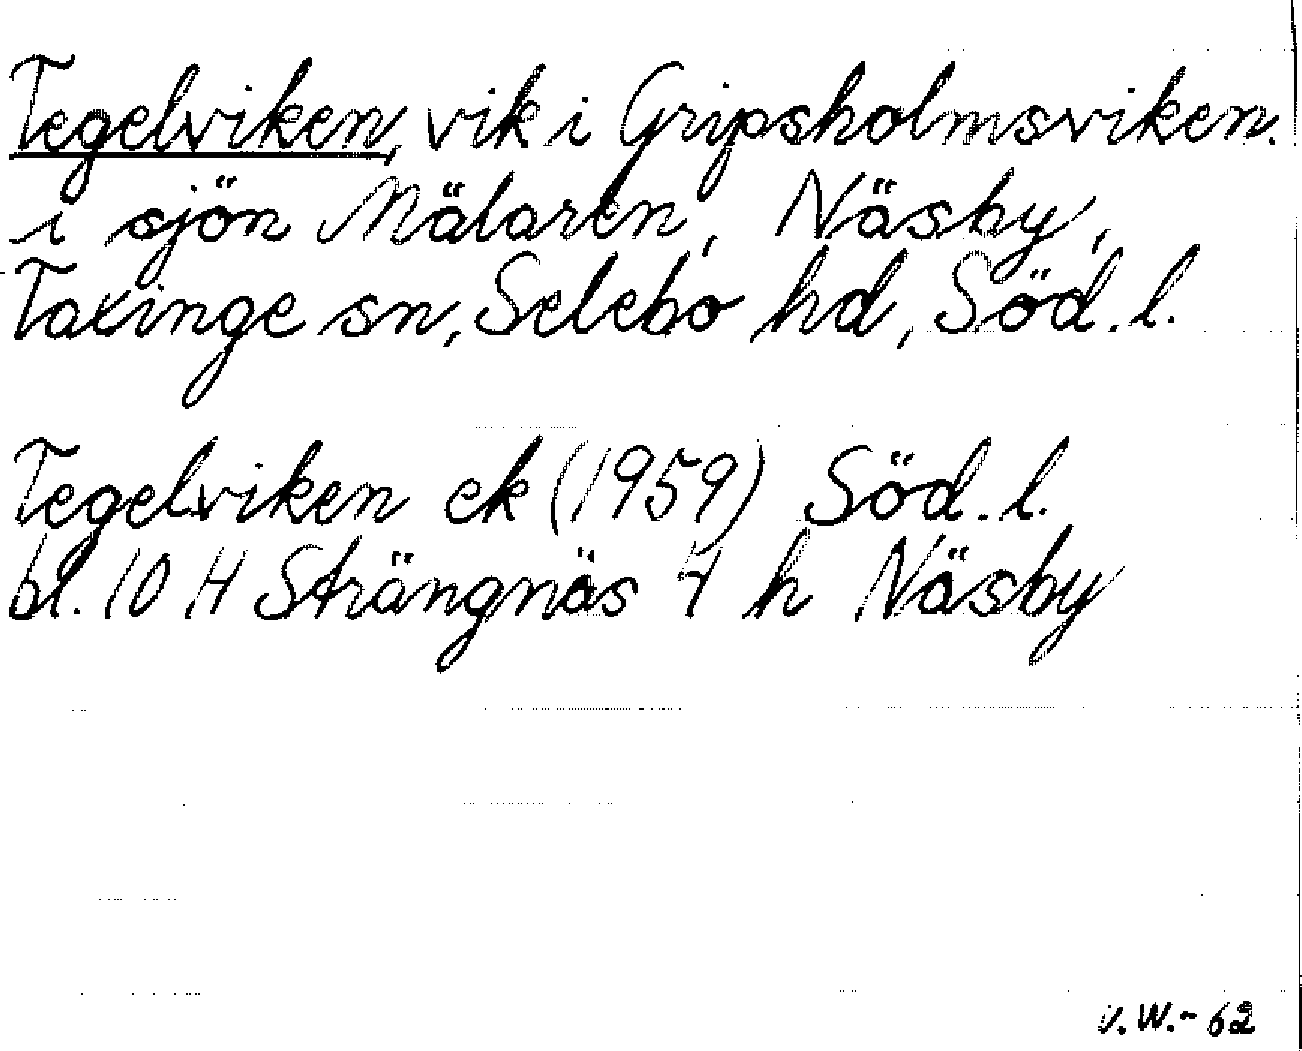 Tegelviken, vik i Gripsholmsviken.
i sjön Mälaren, Näsby,
Taxinge sn, Selebo hd, Söd. l.
Tegelviken ek (1959) Söd. l.
bl. 10 H Strängnäs 7 h Näsby
V.W.-62